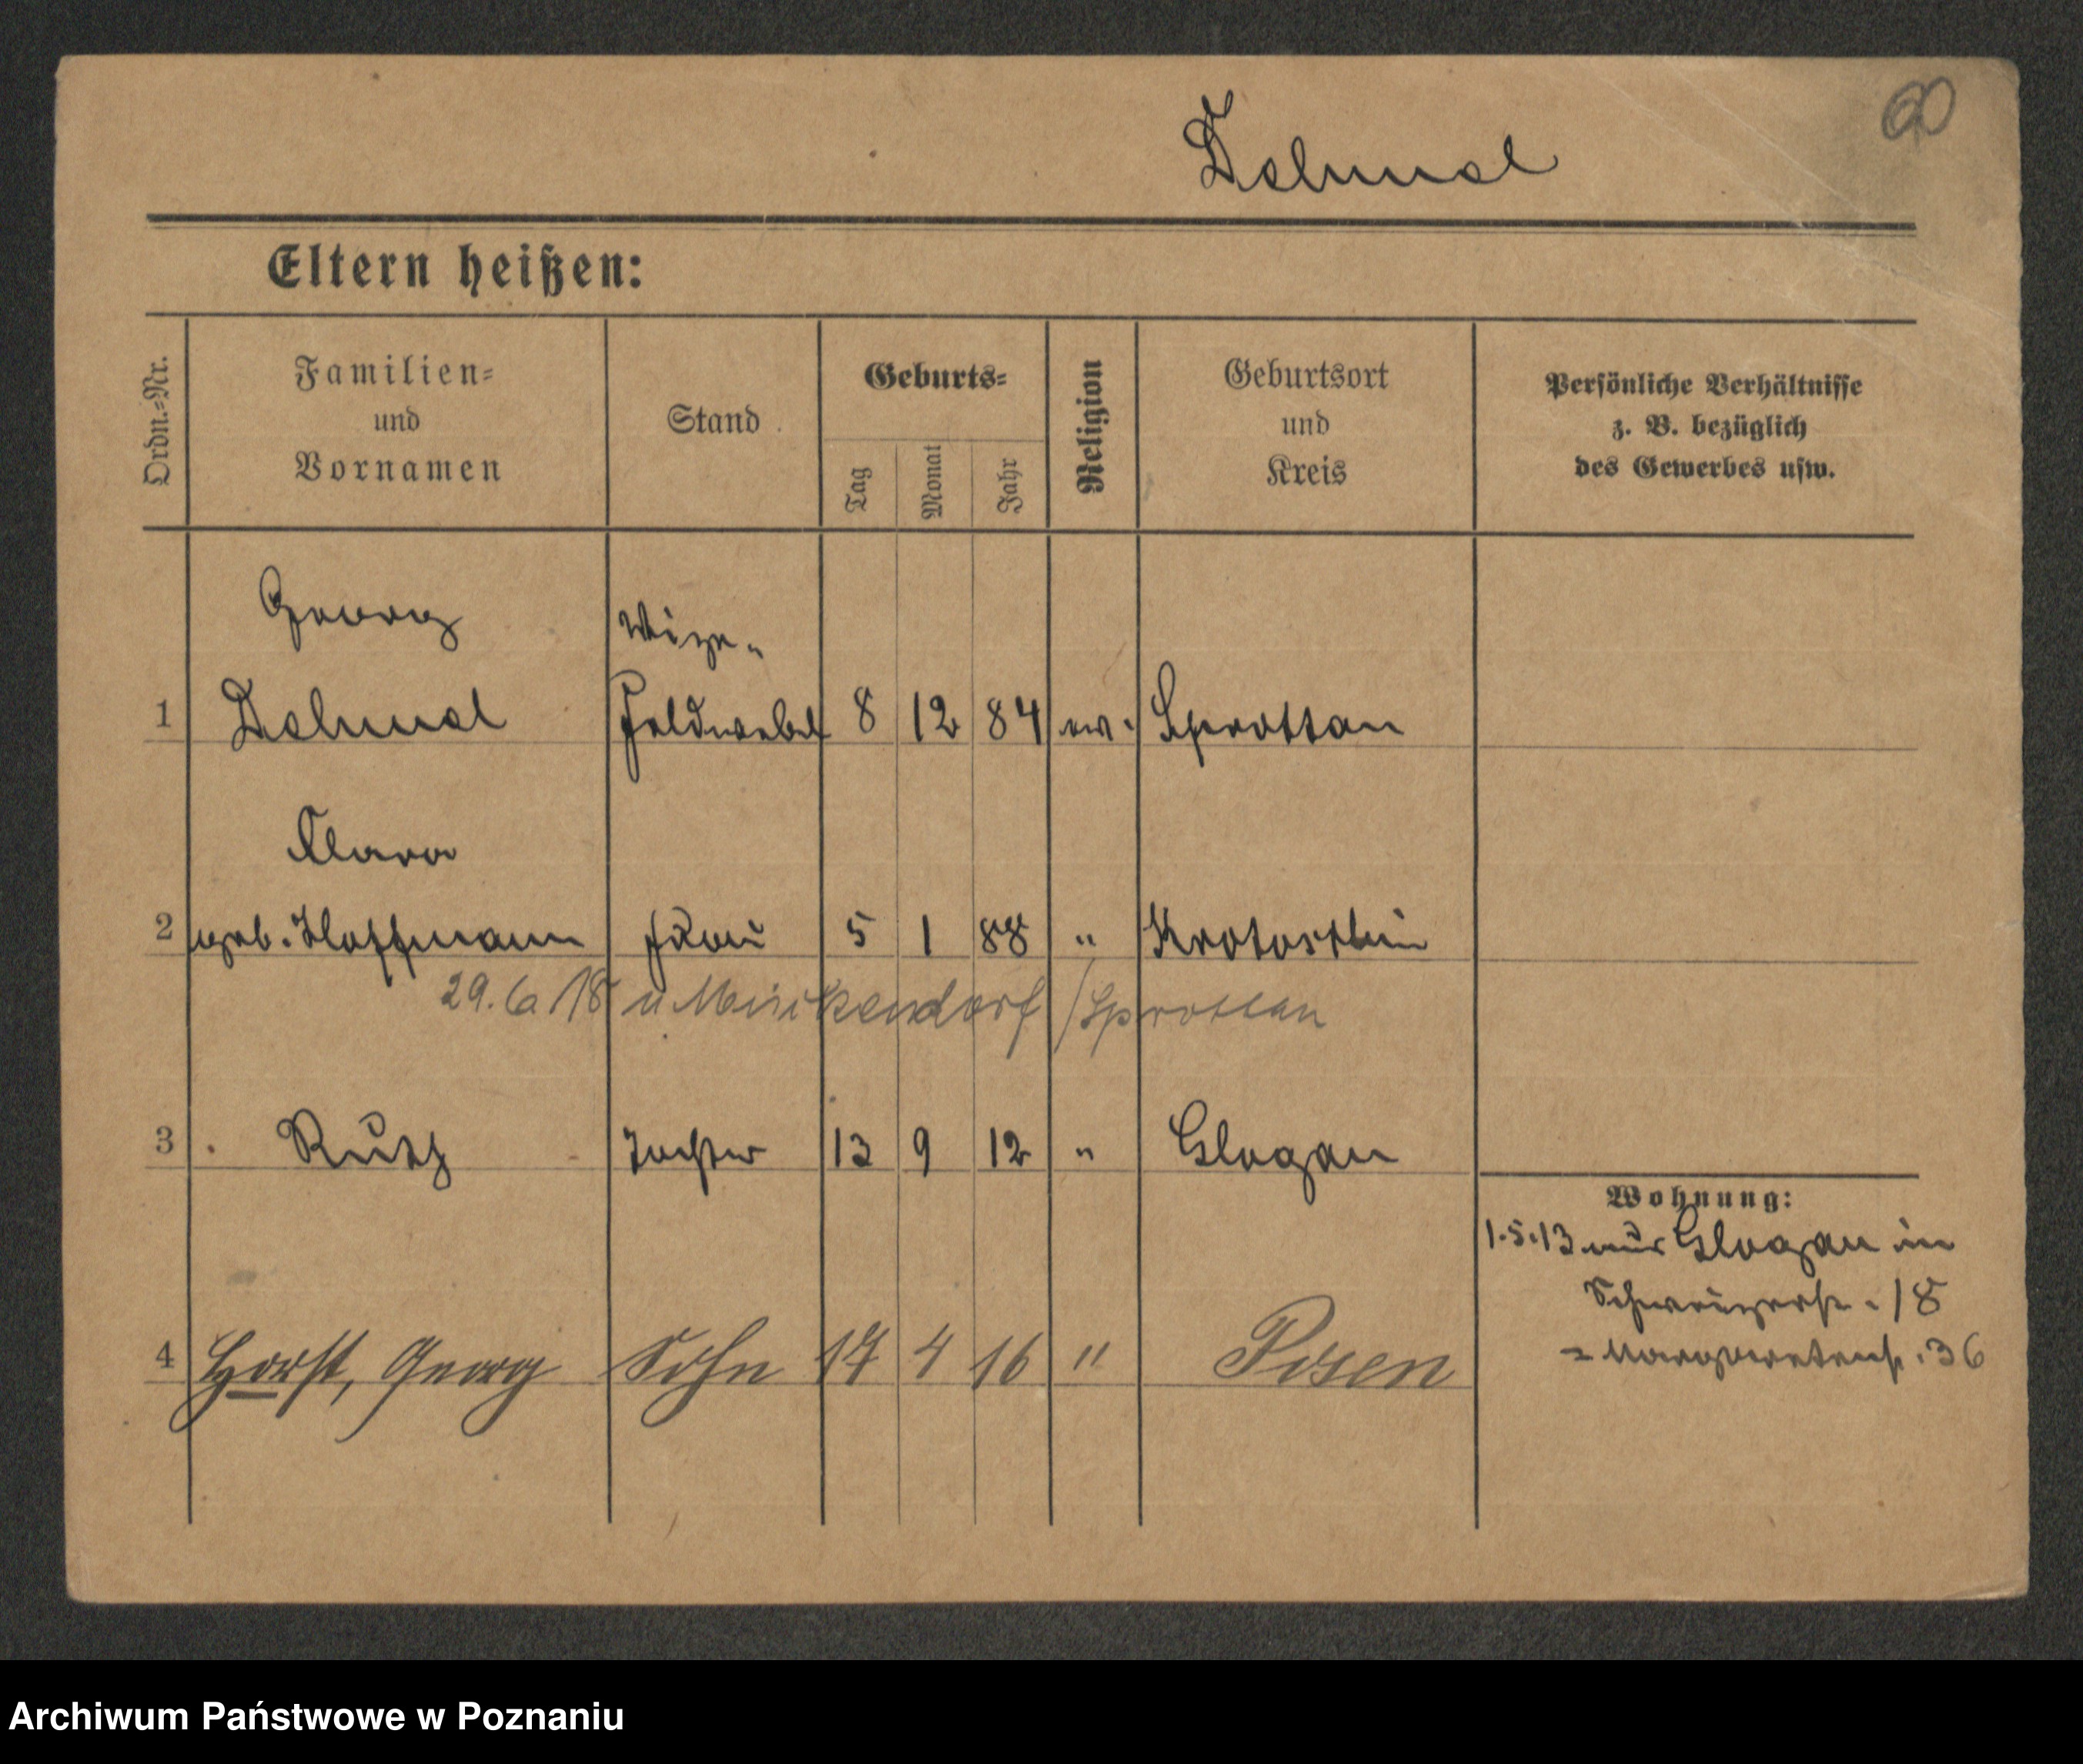 60
Dehmel
Eltern heißen:
Ordn.-Nr.
Familien- und Vornamen
Stand
Geburts-
Tag
Monat
Jahr
Religion
Geburtsort und Kreis
Persönliche Verhältnisse z. B. bezüglich des Gewerbes usw.
Georg Vize-
1 Dehmel Feldwebel 8 12 84 ev. Sprottau
Clara
2 geb. Hoffmann Frau 5 1 88 " Krotoschin
29.6.18 n Mückendorf /Sprottau
3 Ruth Tochter 13 9 12 " Glogau
4 Horst, Georg Sohn 17 4 16 " Posen
Wohnung:
1.5.13 aus Glogau in
Schweizerstr. 18
= Margaretenstr. 36
Archiwum Państwowe w Poznaniu